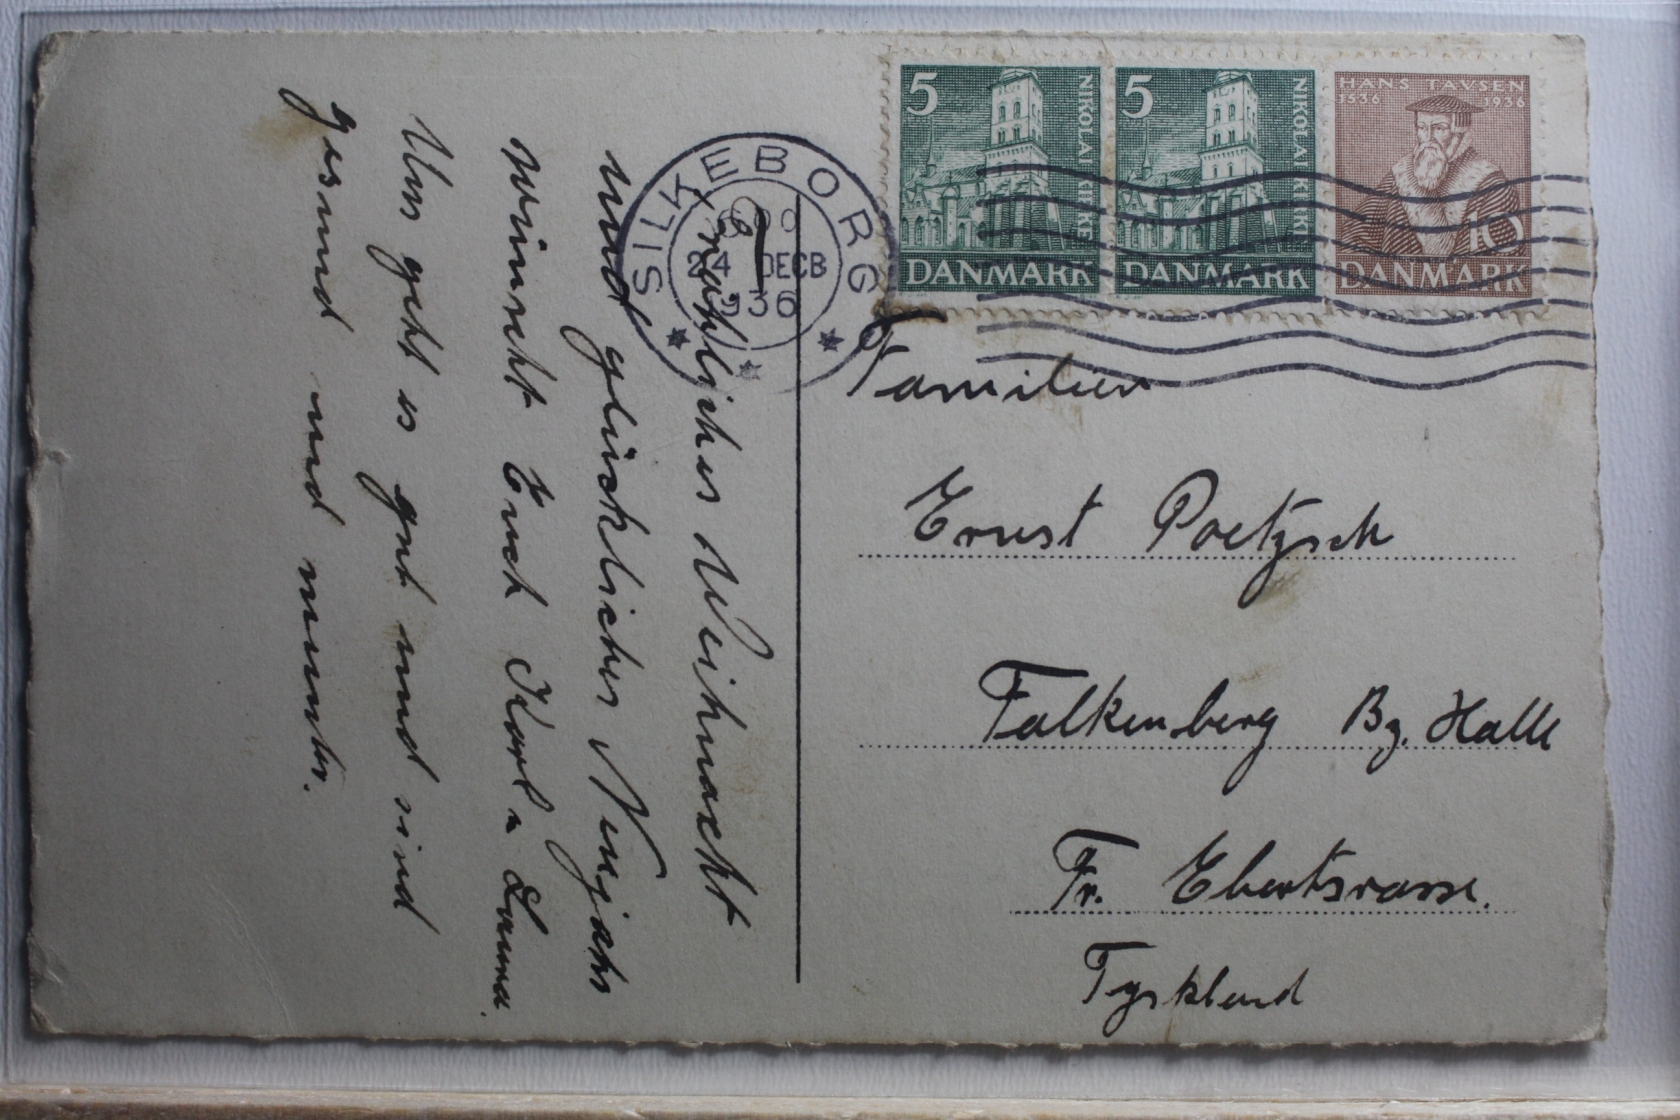 5 NIKOLAI KIRKE DANMARK
5 NIKOLAI KIRKE DANMARK
HANS TAVSEN
1536 1936
10
DANMARK
SILKEBORG
24 DECB
936
Familien
Ernst Poetzsch
Falkenberg Bz. Halle
Fr. Ebertsrasse.
Tyskland
Fröhliches Weihnacht
und glückliches Neujahr
wünscht Euch Karl u
Uns geht es gut und sind
gesund und munter.